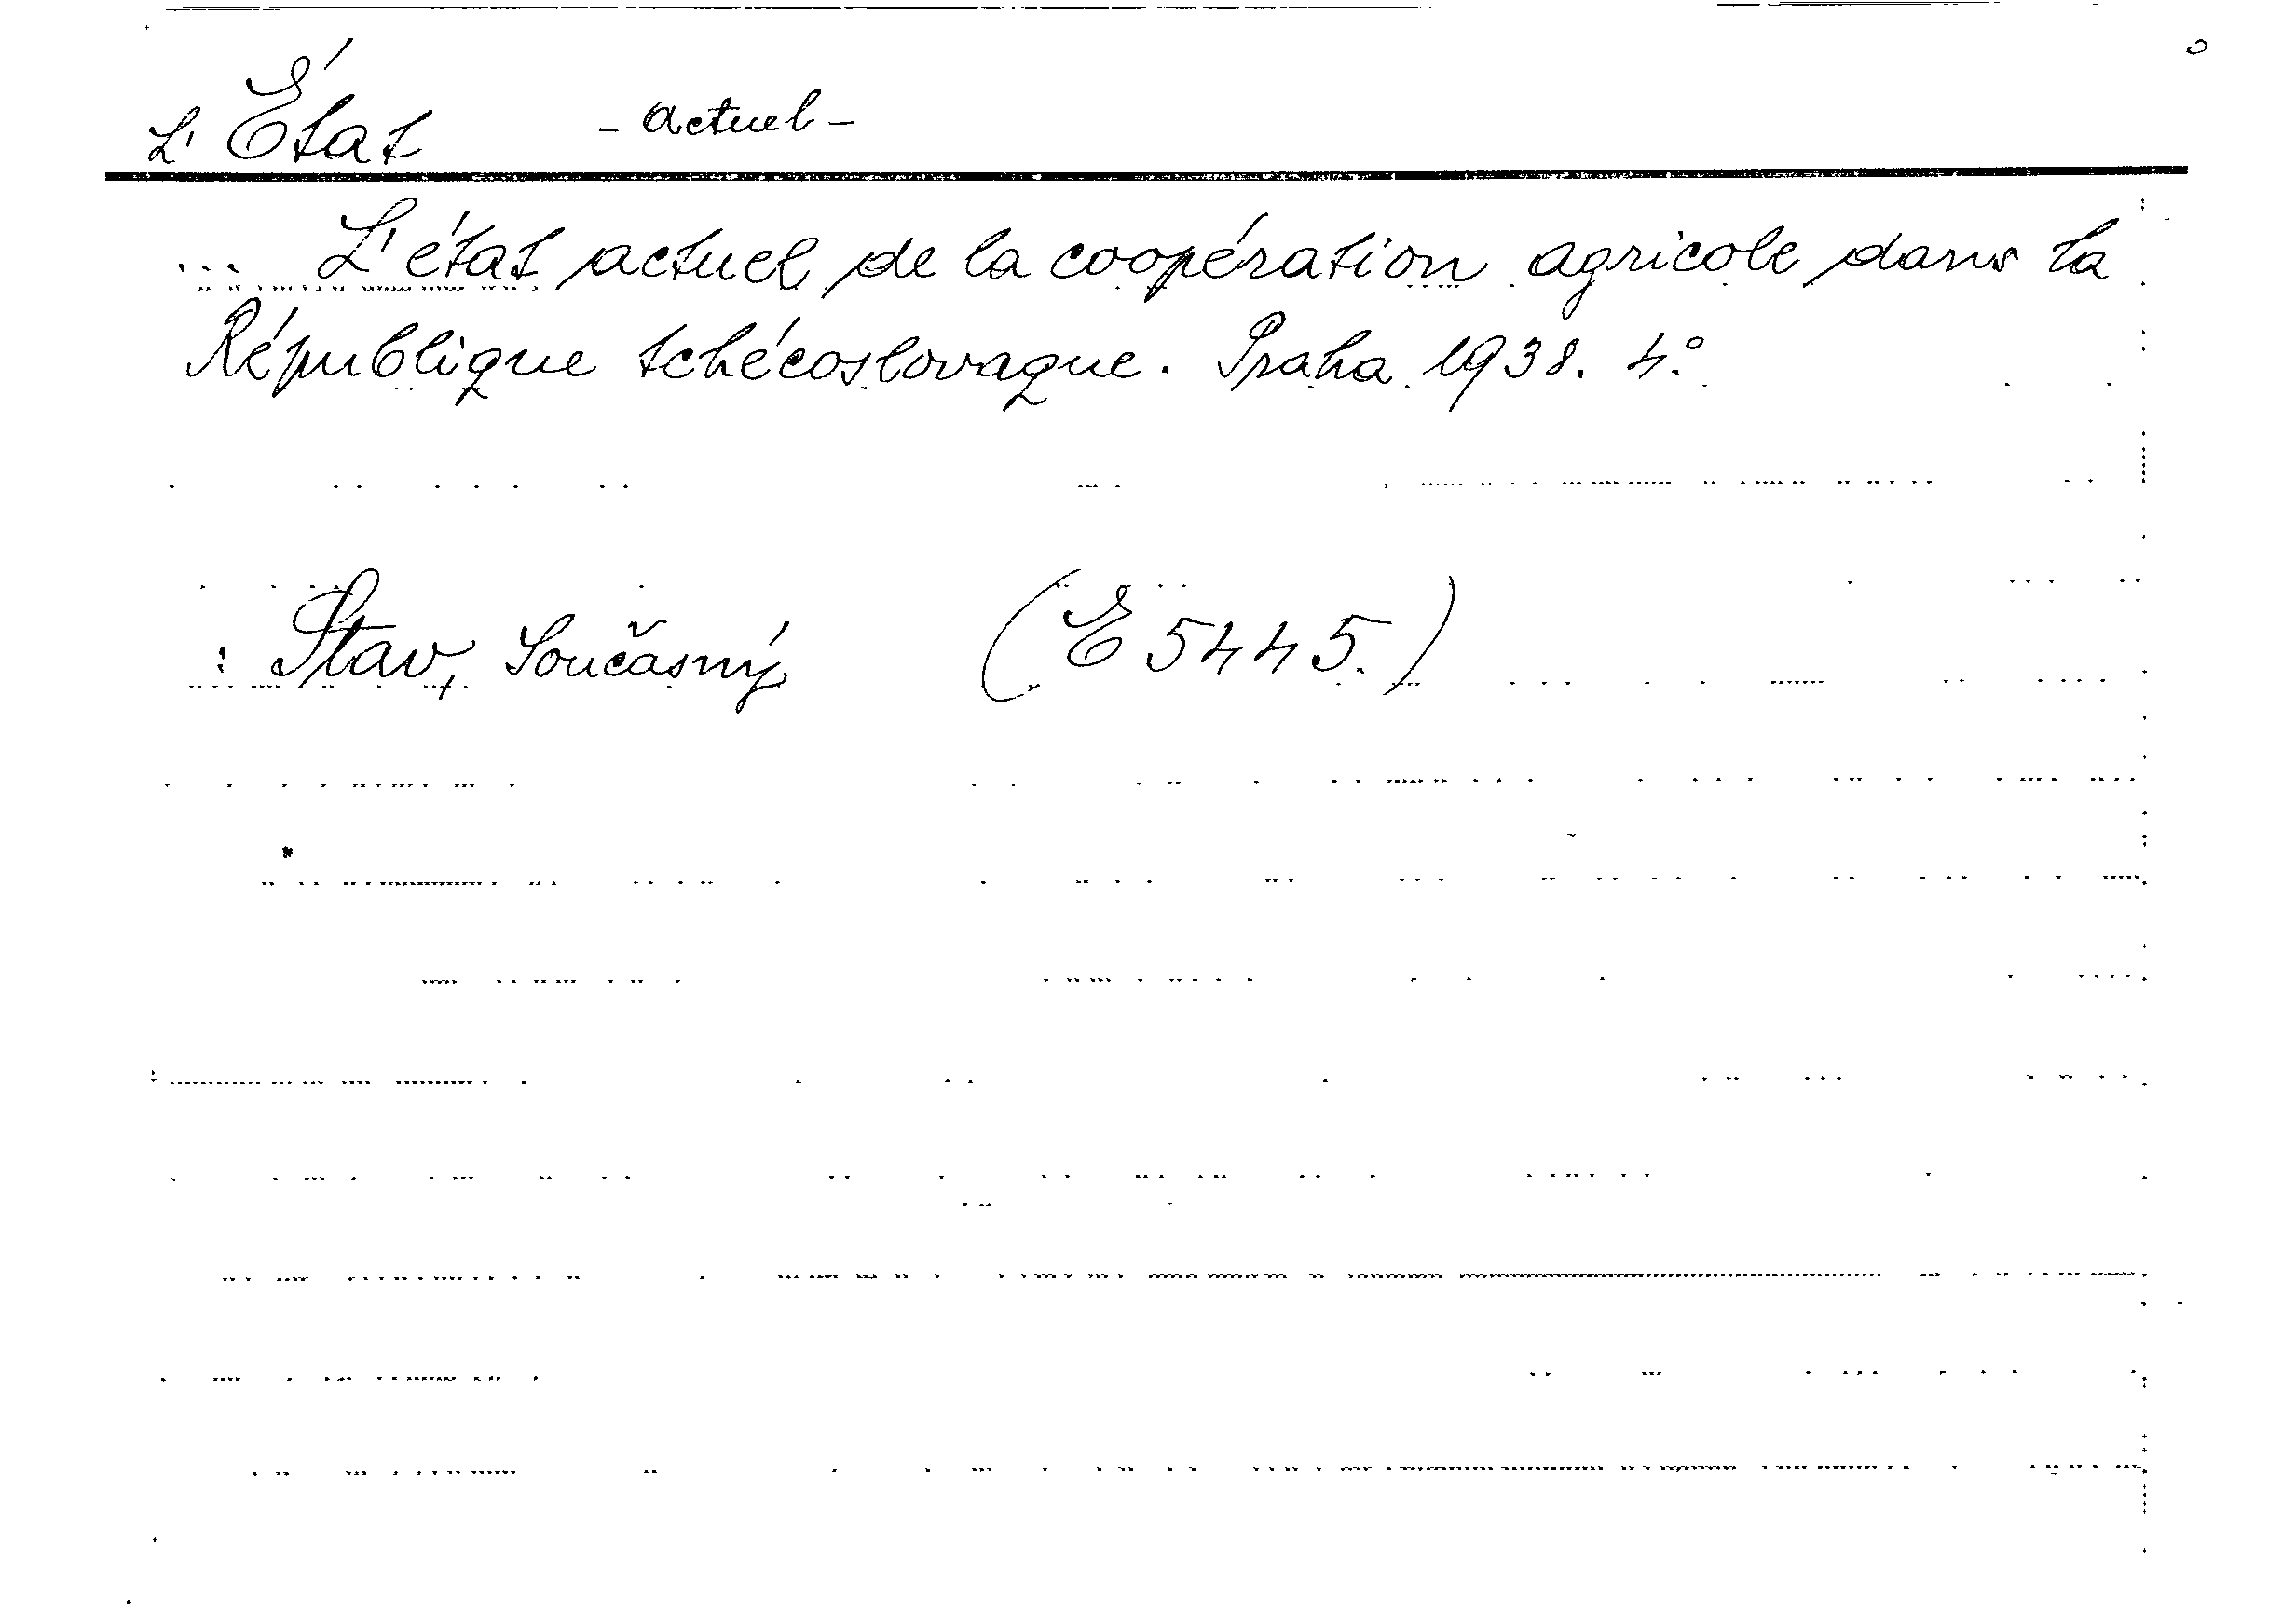 L'État - actuel -
... L'état actuel de la coopération agricole dans la
République tchécoslovaque. Praha 1938. 4°
: Stav, Současný (E 5445.)